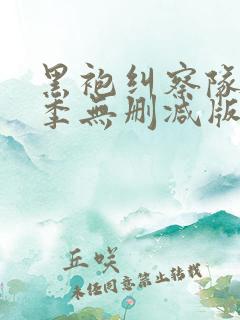 黑袍纠察队
季無删减版
丘唉
未经同意禁止转载